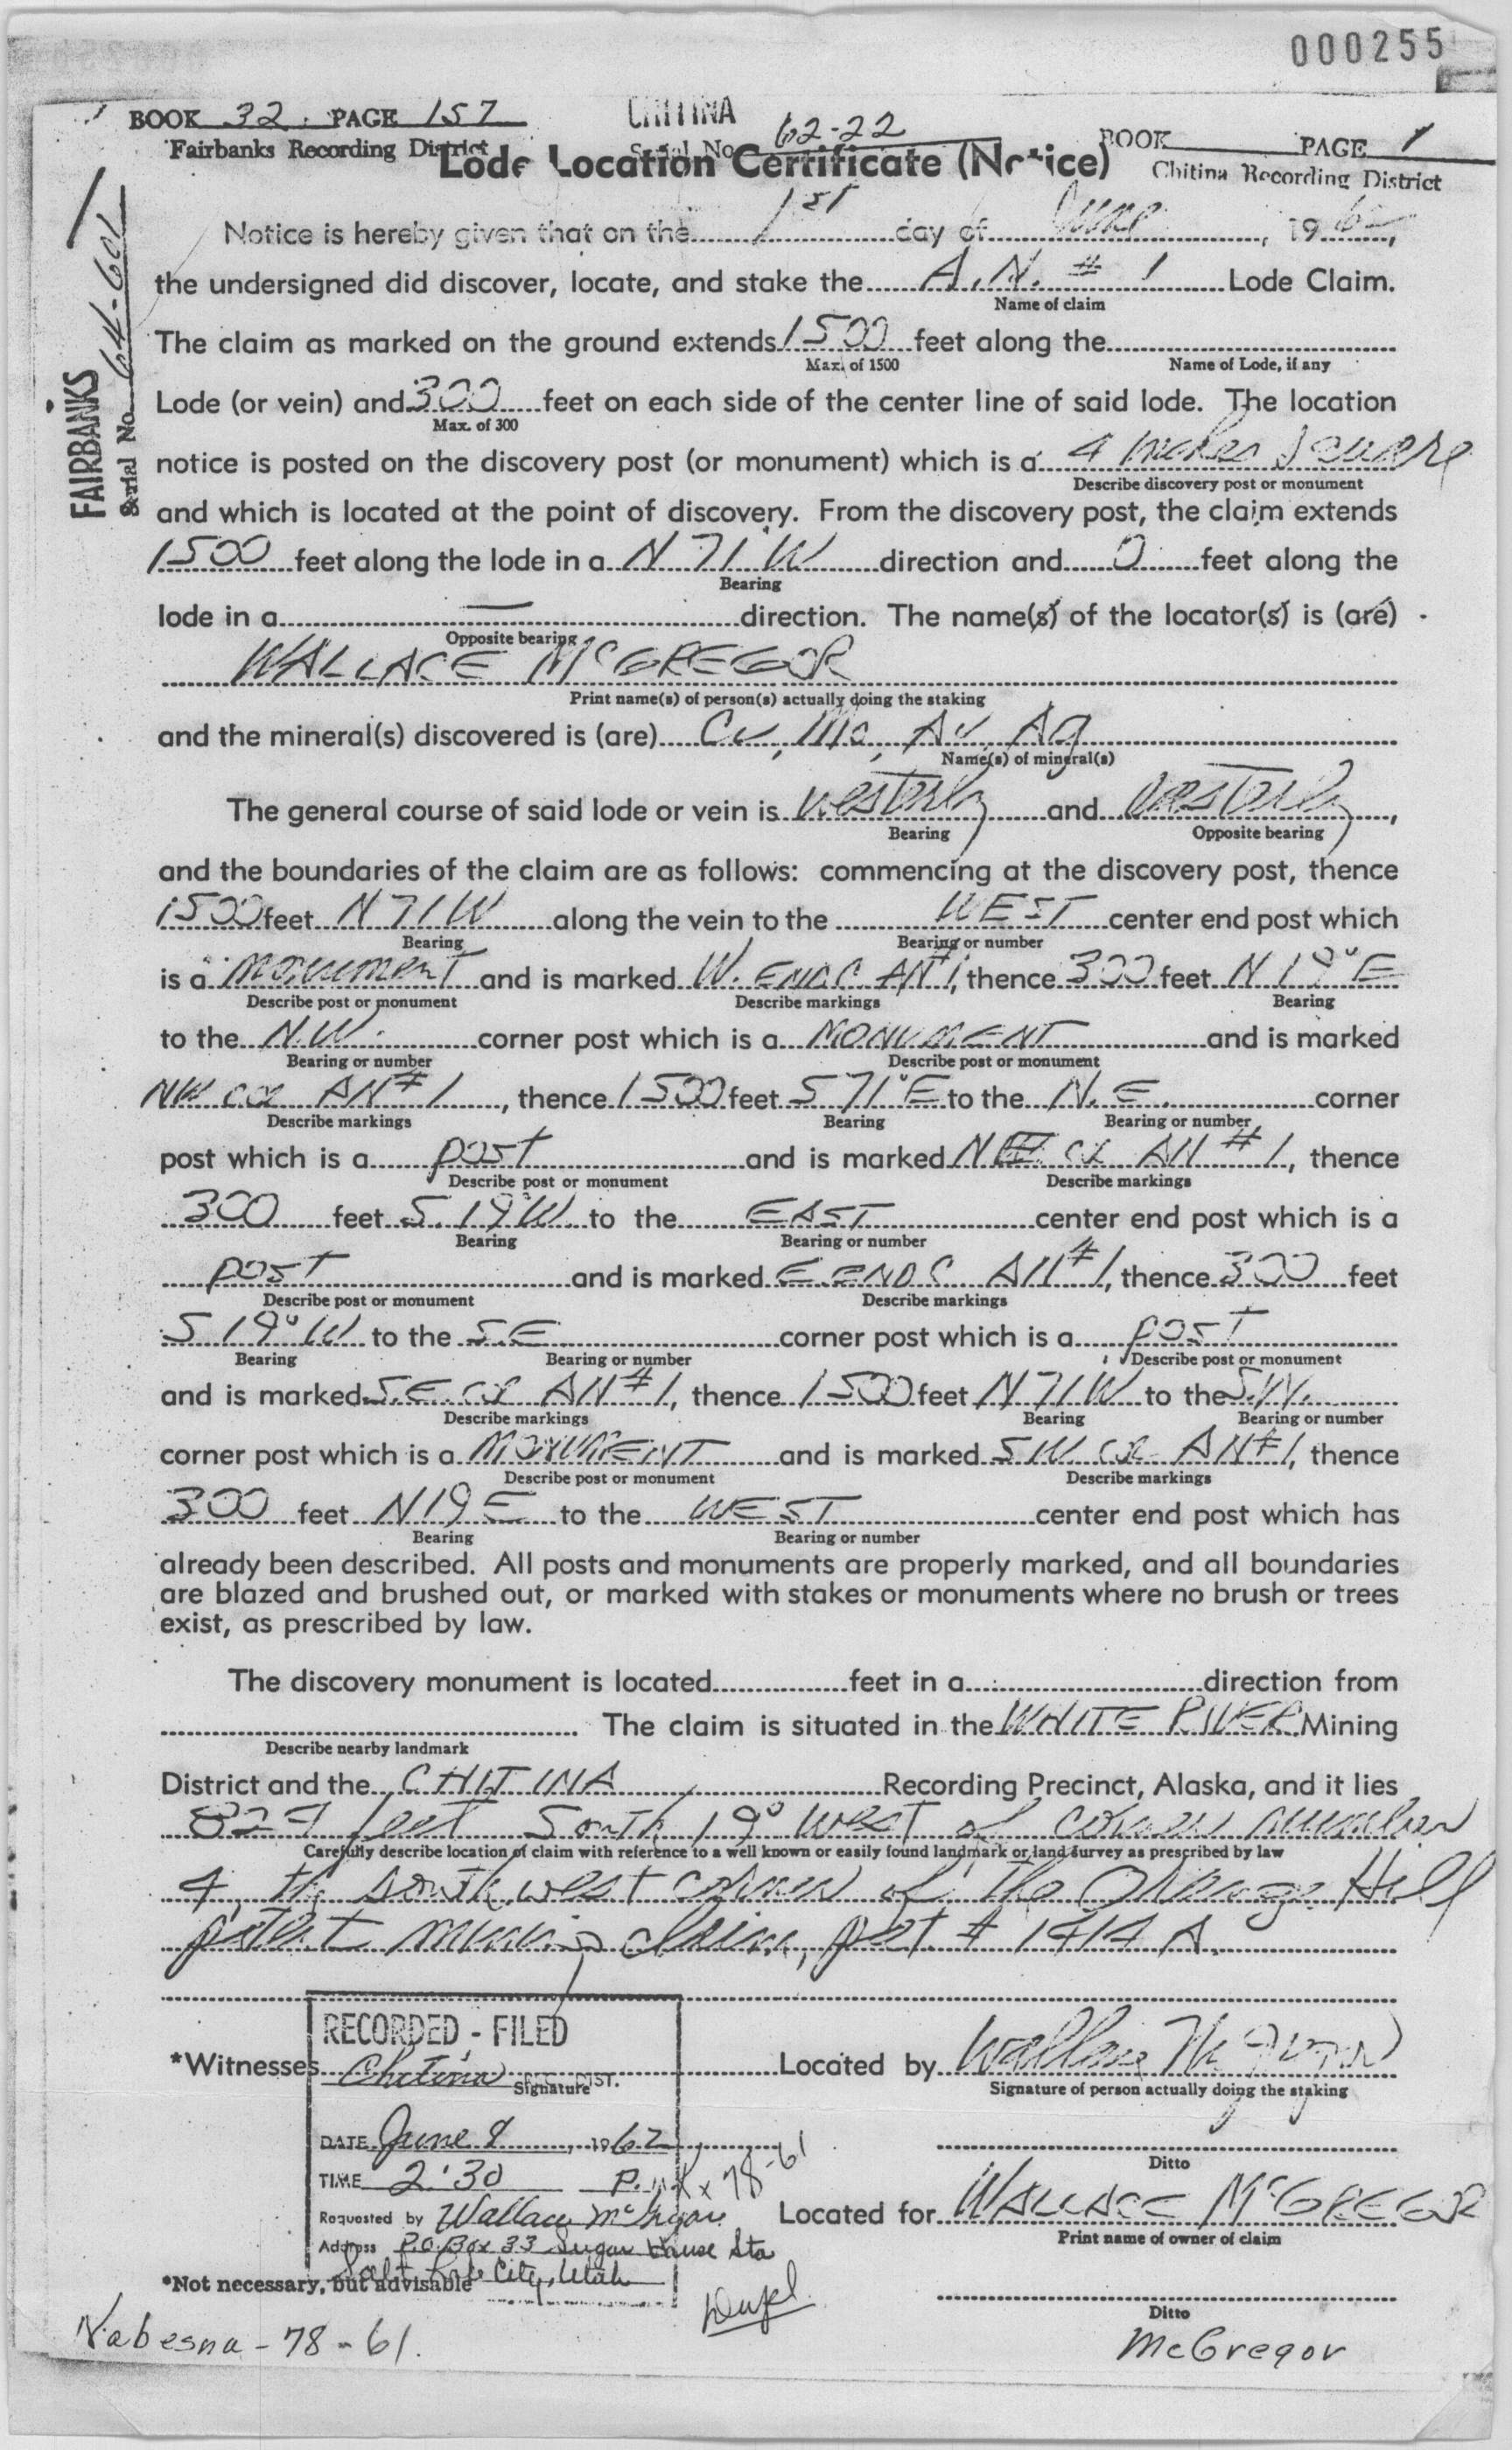 000255
BOOK 32 PAGE 157
CHITINA
Serial No. 62-22
BOOK PAGE 1
Fairbanks Recording District
Lode Location Certificate (Notice)
Chitina Recording District
FAIRBANKS
Serial No. 64-601
Notice is hereby given that on the 1st day of June, 1962,
the undersigned did discover, locate, and stake the A.N. # 1 Lode Claim.
Name of claim
The claim as marked on the ground extends 1500 feet along the
Max. of 1500 Name of Lode, if any
Lode (or vein) and 300 feet on each side of the center line of said lode. The location
Max. of 300
notice is posted on the discovery post (or monument) which is a 4 inches square
Describe discovery post or monument
and which is located at the point of discovery. From the discovery post, the claim extends
1500 feet along the lode in a N 71 W direction and 0 feet along the
Bearing
lode in a — direction. The name(s) of the locator(s) is (are)
Opposite bearing
WALLACE McGREGOR
Print name(s) of person(s) actually doing the staking
and the mineral(s) discovered is (are) Cu, Mo, Au, Ag
Name(s) of mineral(s)
The general course of said lode or vein is westerly and westerly,
Bearing Opposite bearing
and the boundaries of the claim are as follows: commencing at the discovery post, thence
1500 feet N 71 W along the vein to the WEST center end post which
Bearing Bearing or number
is a monument and is marked W. END C AN#1, thence 300 feet N 19° E
Describe post or monument Describe markings Bearing
to the N.W. corner post which is a MONUMENT and is marked
Bearing or number Describe post or monument
NW cor AN#1, thence 1500 feet S 71° E to the N.E. corner
Describe markings Bearing Bearing or number
post which is a post and is marked NE cor AN #1, thence
Describe post or monument Describe markings
300 feet S 19° W to the EAST center end post which is a
Bearing Bearing or number
post and is marked E. END C AN#1, thence 300 feet
Describe post or monument Describe markings
S 19° W to the S.E corner post which is a post
Bearing Bearing or number Describe post or monument
and is marked S.E. cor AN#1, thence 1500 feet N 71 W to the S.W.
Describe markings Bearing Bearing or number
corner post which is a MONUMENT and is marked SW cor AN#1, thence
Describe post or monument Describe markings
300 feet N 19 E to the WEST center end post which has
Bearing Bearing or number
already been described. All posts and monuments are properly marked, and all boundaries
are blazed and brushed out, or marked with stakes or monuments where no brush or trees
exist, as prescribed by law.
The discovery monument is located feet in a direction from
The claim is situated in the WHITE RIVER Mining
Describe nearby landmark
District and the CHITINA Recording Precinct, Alaska, and it lies
829 feet South 19° west of corner number
Carefully describe location of claim with reference to a well known or easily found landmark or land survey as prescribed by law
4, the southwest corner of the Orange Hill
patent mining claim, pat # 1414 A.
RECORDED - FILED
*Witnesses Chitina REC. DIST. Located by Wallace McGregor
Signature Signature of person actually doing the staking
DATE June 8, 1962
Ditto
TIME 2:30 P.M. Rx 78-61
Requested by Wallace McGregor Located for WALLACE McGREGOR
Print name of owner of claim
Address P.O. Box 33 Sugar House Sta
Salt Lake City, Utah
*Not necessary, but advisable
Ditto
Nabesna - 78-61.
McGregor